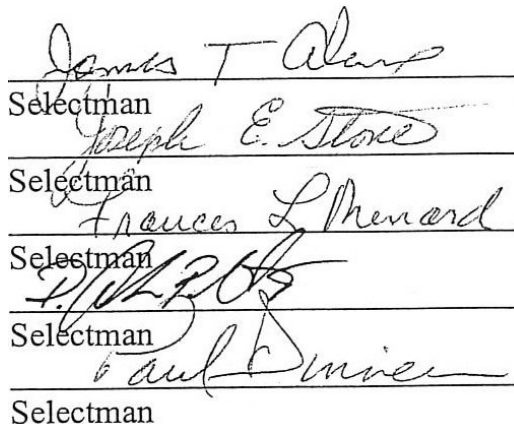 James T
Selectman
Joseph E. Stone
Selectman
Frances L Menard
Selectman
P.
Selectman
Paul
Selectman